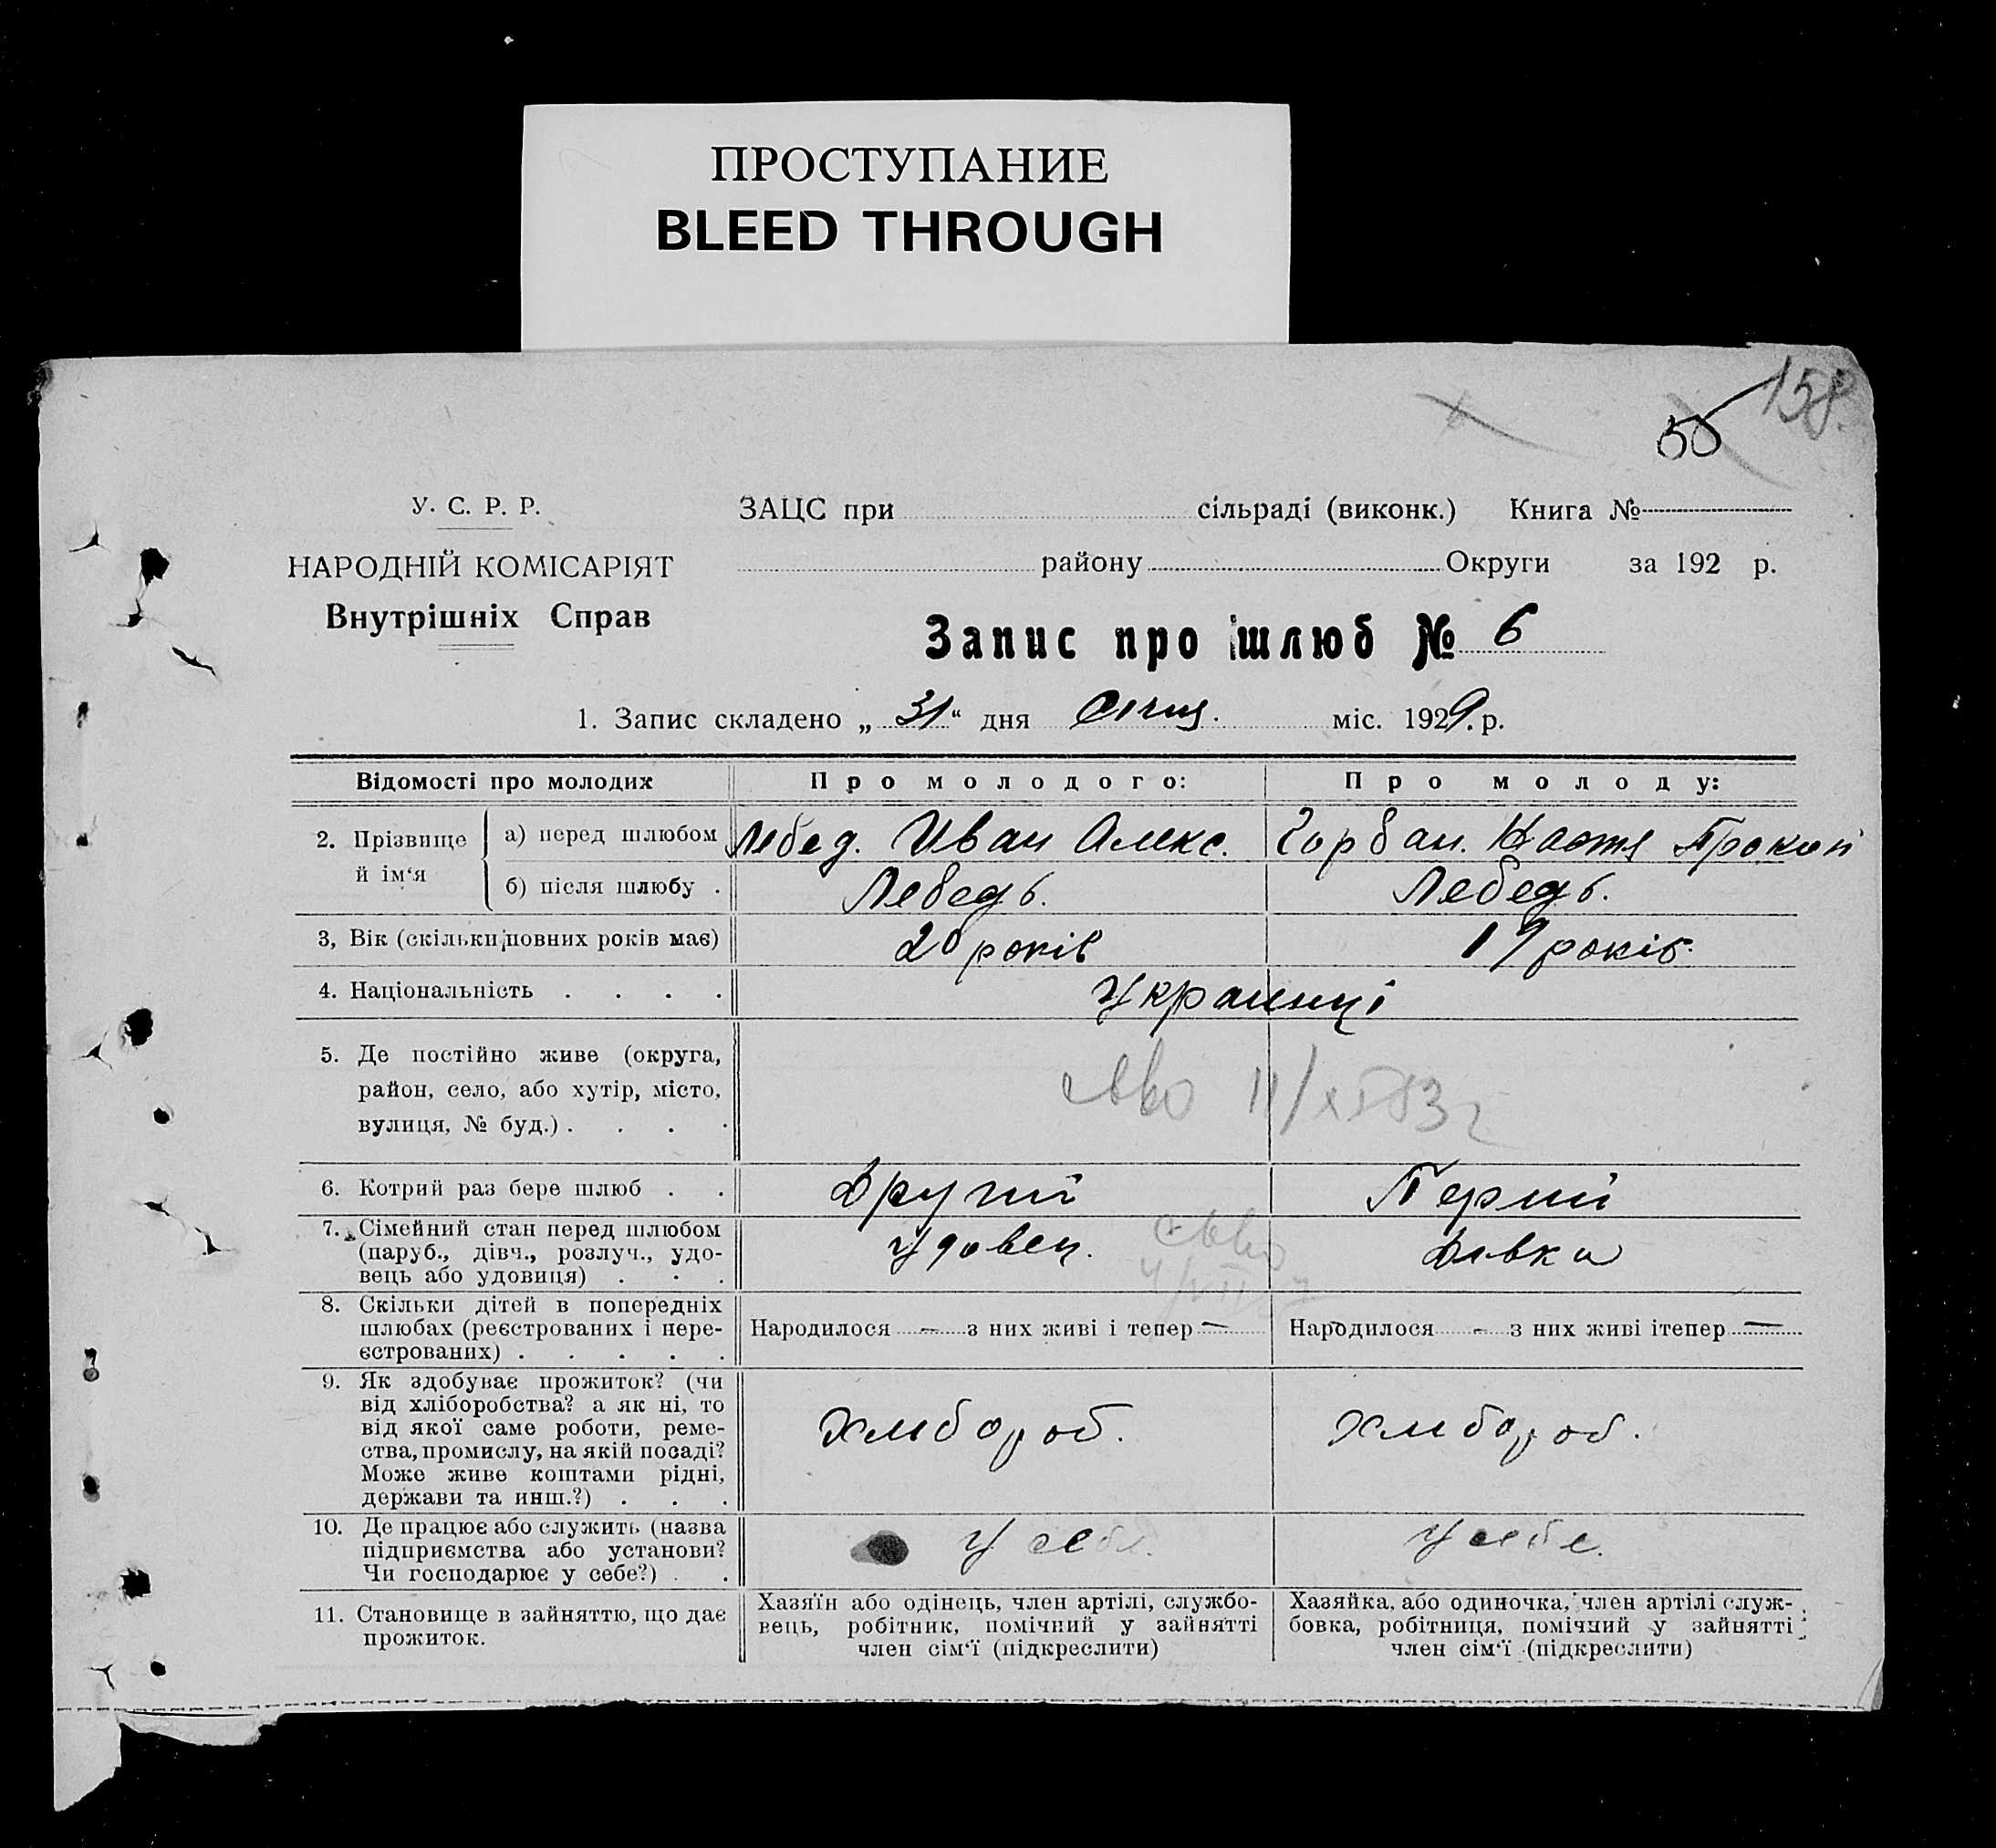 ПРОСТУПАНИЕ
BLEED THROUGH
158.
У. С. Р. Р.
ЗАЦС при сільраді (виконк.) Книга №
НАРОДНІЙ КОМІСАРІЯТ
району Округи за 192 р.
Внутрішніх Справ
Запис про шлюб № 6
1. Запис складено „ 31 “ дня січня. міс. 1929. р.
Відомості про молодих
Про молодого:
Про молоду:
2. Прізвище й ім‘я
а) перед шлюбом
Лебед. Иван Алекс.
Горбан. Настя Прокоп
б) після шлюбу .
Лебедь.
Лебедь.
3, Вік (скільки повних років має)
20 років
19 років.
4. Національність . . . .
Украинці
5. Де постійно живе (округа,
район, село, або хутір, місто,
вулиця, № буд.) . . . .
6. Котрий раз бере шлюб . .
Другий
Перший
7. Сімейний стан перед шлюбом
(паруб., дівч., розлуч., удо-
вець або удовиця) . . .
Удовец.
Дівка
8. Скільки дітей в попередніх
шлюбах (реєстрованих і нере-
єстрованих) . . . . .
Народилося — з них живі і тепер —
Народилося — з них живі ітепер —
9. Як здобуває прожиток? (чи
від хліборобства? а як ні, то
від якої саме роботи, реме-
ства, промислу, на якій посаді?
Може живе коштами рідні,
держави та инш.?) . . .
Хлибороб.
Хлибороб.
10. Де працює або служить (назва
підприємства або установи?
Чи господарює у себе?) . .
У себе.
У себе.
11. Становище в зайняттю, що дає
прожиток.
Хазяїн або одінець, член артілі, службо-
вець, робітник, помічний у зайнятті
член сім‘ї (підкреслити)
Хазяйка, або одиночка, член артілі служ-
бовка, робітниця, помічний у зайнятті
член сім‘ї (підкреслити)